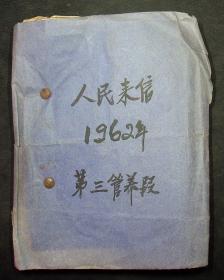 人民来信
1962年
第三管养段